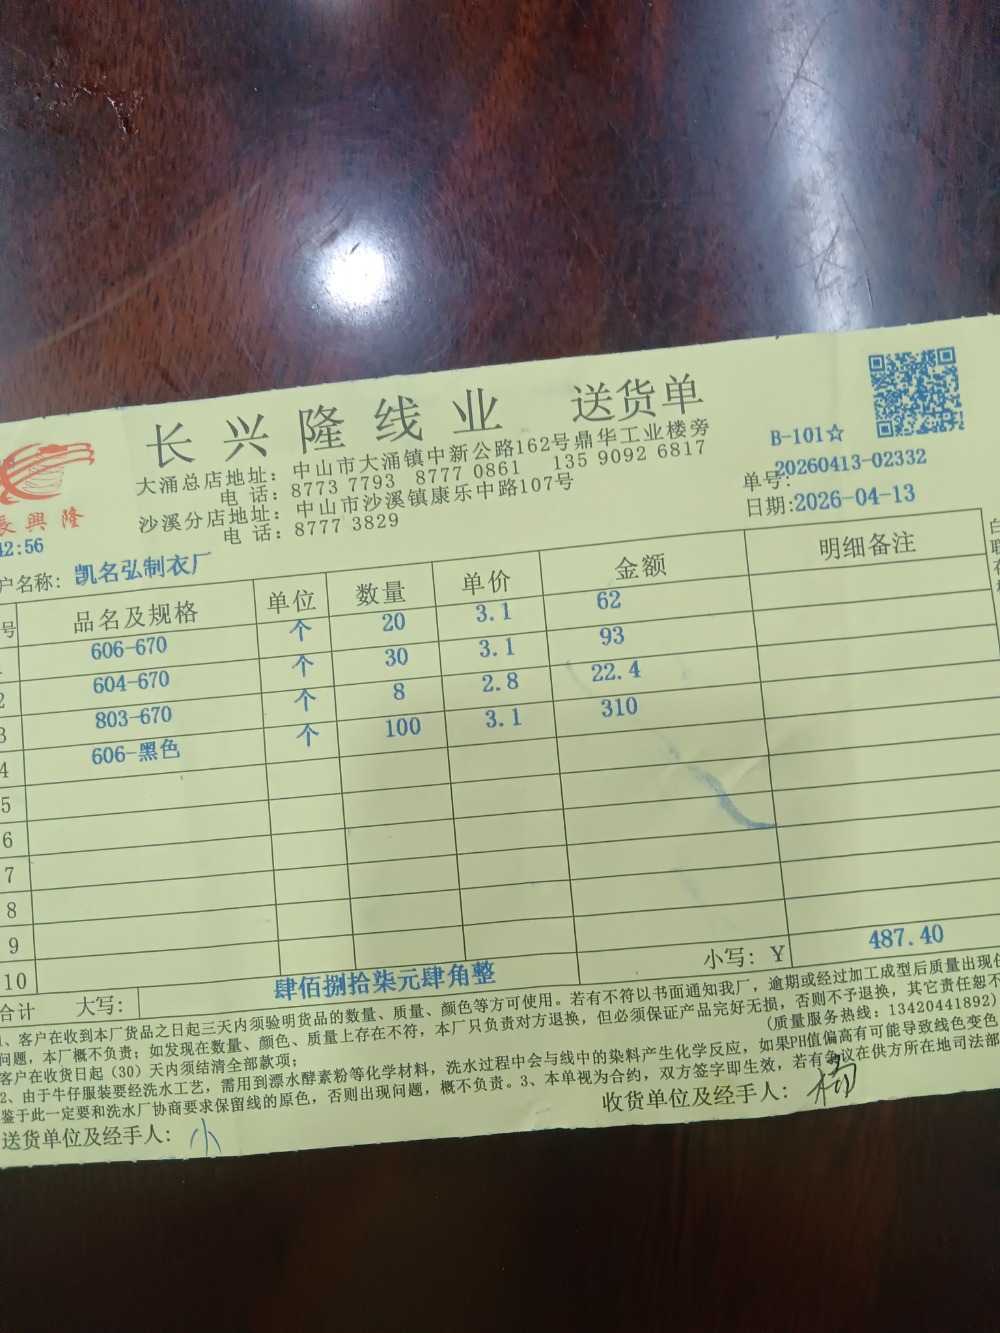 长兴隆线业 送货单
B-101☆
大涌总店地址：中山市大涌镇中新公路162号鼎华工业楼旁
电 话：8773 7793 8777 0861 135 9092 6817
沙溪分店地址：中山市沙溪镇康乐中路107号
电 话：8777 3829
单号:20260413-02332
日期:2026-04-13
長興隆
42:56
户名称: 凯名弘制衣厂
号 品名及规格 单位 数量 单价 金额 明细备注
606-670 个 20 3.1 62
2 604-670 个 30 3.1 93
3 803-670 个 8 2.8 22.4
4 606-黑色 个 100 3.1 310
5
6
7
8
9
10
合计 大写: 肆佰捌拾柒元肆角整 小写: ¥ 487.40
1、客户在收到本厂货品之日起三天内须验明货品的数量、质量、颜色等方可使用。若有不符以书面通知我厂，逾期或经过加工成型后质量出现任
问题，本厂概不负责；如发现在数量、颜色、质量上存在不符，本厂只负责对方退换，但必须保证产品完好无损，否则不予退换，其它责任恕不
客户在收货日起（30）天内须结清全部款项；（质量服务热线：13420441892）
2、由于牛仔服装要经洗水工艺，需用到漂水酵素粉等化学材料，洗水过程中会与线中的染料产生化学反应，如果PH值偏高有可能导致线色变色
鉴于此一定要和洗水厂协商要求保留线的原色，否则出现问题，概不负责。3、本单视为合约，双方签字即生效，若有争议在供方所在地司法部
送货单位及经手人: 小 收货单位及经手人: 杨